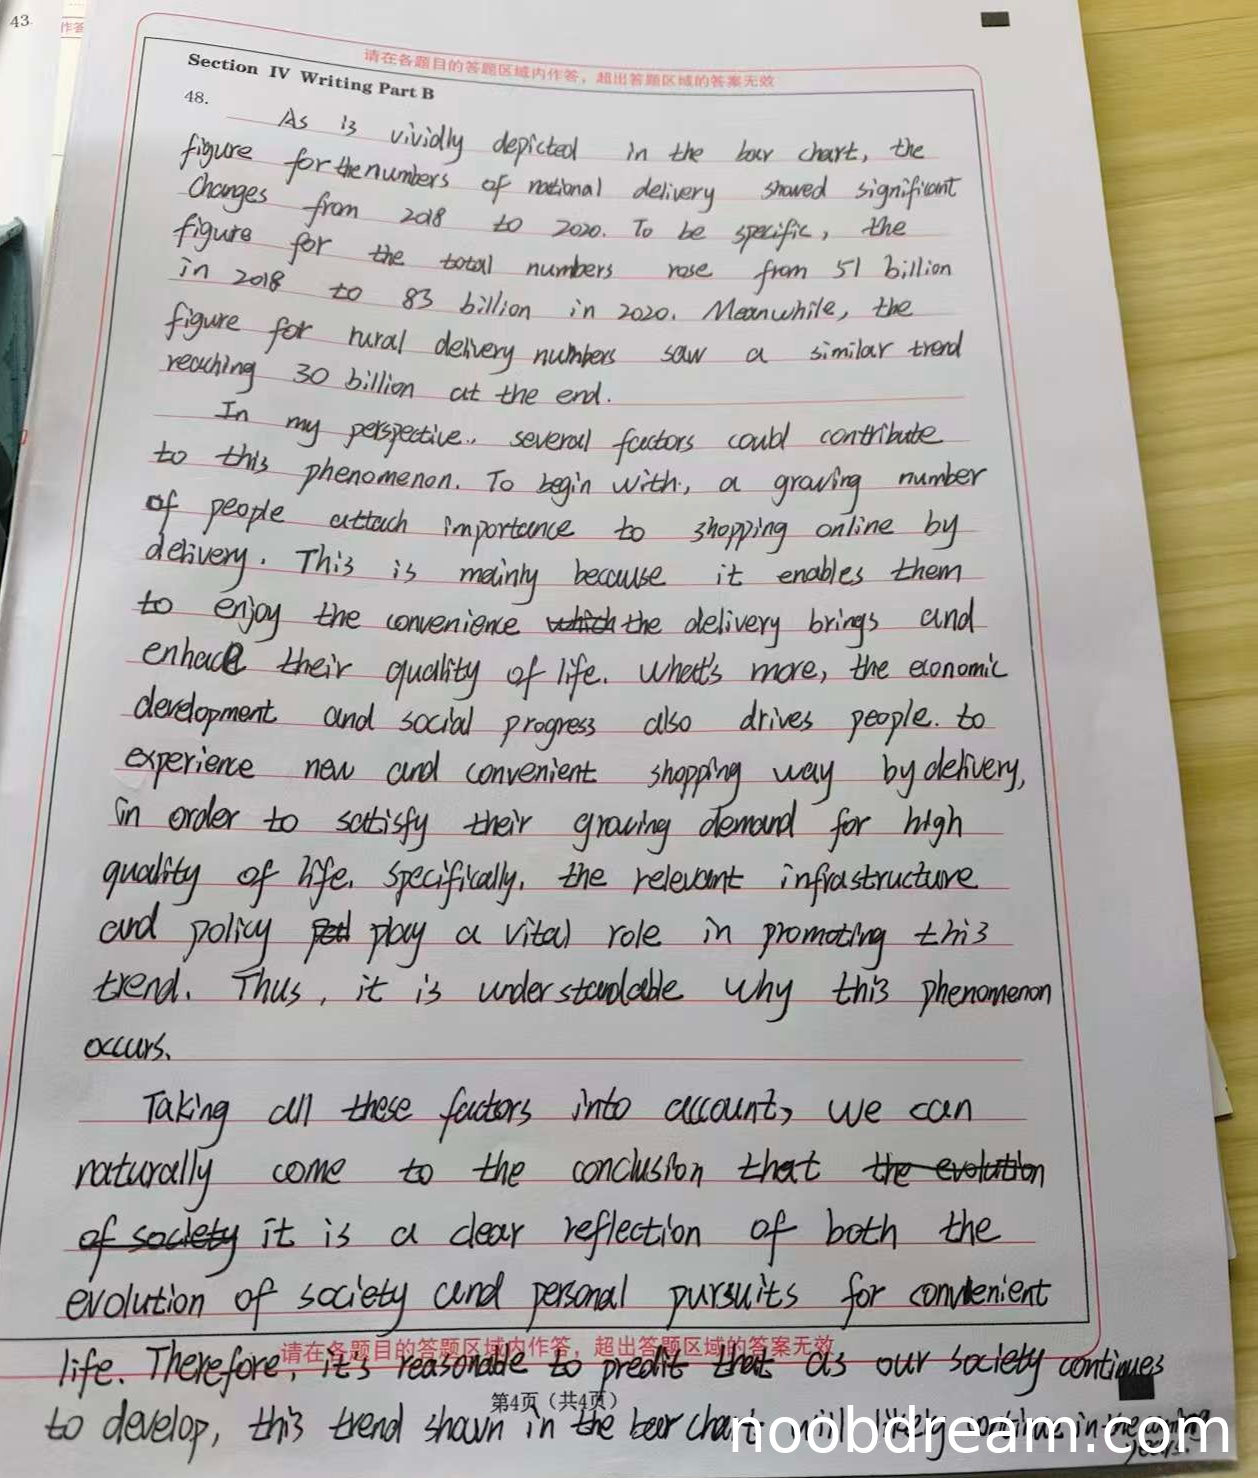 43.
作答
请在各题目的答题区域内作答，超出答题区域的答案无效
Section IV Writing Part B
48.
As is vividly depicted in the bar chart, the
figure for the numbers of national delivery showed significant
changes from 2018 to 2020. To be specific, the
figure for the total numbers rose from 51 billion
in 2018 to 83 billion in 2020. Meanwhile, the
figure for rural delivery numbers saw a similar trend
reaching 30 billion at the end.
In my perspective, several factors could contribute
to this phenomenon. To begin with, a growing number
of people attach importance to shopping online by
delivery. This is mainly because it enables them
to enjoy the convenience which the delivery brings and
enhace their quality of life. What's more, the economic
development and social progress also drives people to
experience new and convenient shopping way by delivery,
in order to satisfy their growing demand for high
quality of life. Specifically, the relevant infrastructure
and policy play a vital role in promoting this
trend. Thus, it is understandable why this phenomenon
occurs.
Taking all these factors into account, we can
naturally come to the conclusion that the evolution
of society it is a clear reflection of both the
evolution of society and personal pursuits for convenient
请在各题目的答题区域内作答，超出答题区域的答案无效
life. Therefore, it's reasonable to predit that as our society continues
第4页（共4页）
to develop, this trend shown in the bar chart will likely continue in the coming
years.
noobdream.com